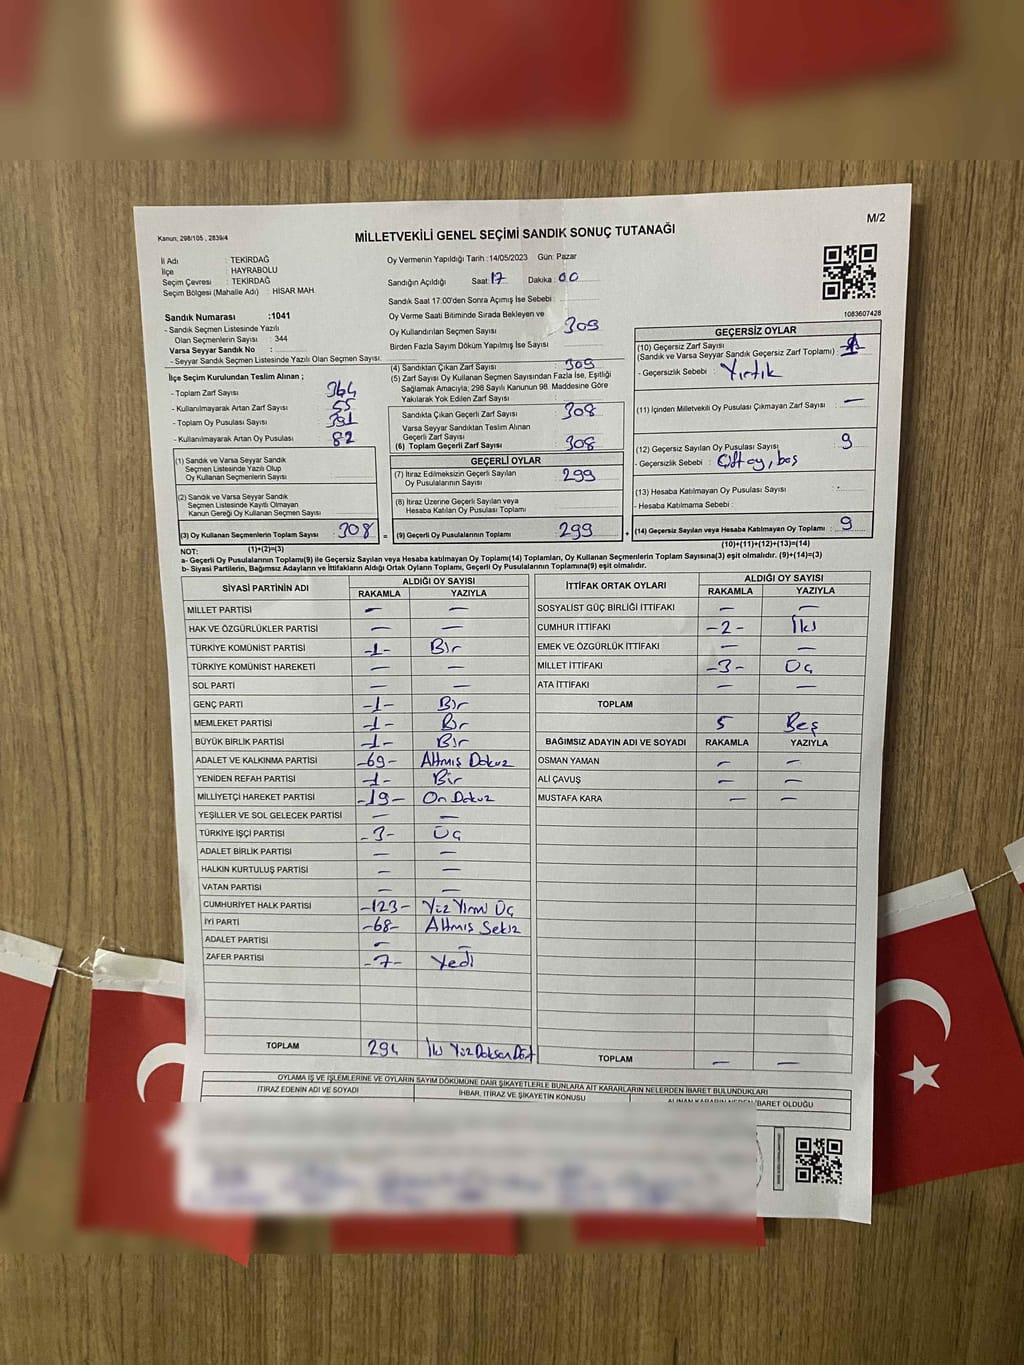 M/2
Kanun; 298/105 , 2839/4
MİLLETVEKİLİ GENEL SEÇİMİ SANDIK SONUÇ TUTANAĞI
İl Adı : TEKİRDAĞ
İlçe : HAYRABOLU
Seçim Çevresi : TEKİRDAĞ
Seçim Bölgesi (Mahalle Adı) : HİSAR MAH.
Sandık Numarası :1041
- Sandık Seçmen Listesinde Yazılı
Olan Seçmenlerin Sayısı : 344
Varsa Seyyar Sandık No :
- Seyyar Sandık Seçmen Listesinde Yazılı Olan Seçmen Sayısı:
İlçe Seçim Kurulundan Teslim Alınan ;
- Toplam Zarf Sayısı : 364
- Kullanılmayarak Artan Zarf Sayısı : 55
- Toplam Oy Pusulası Sayısı : 391
- Kullanılmayarak Artan Oy Pusulası : 82
(1) Sandık ve Varsa Seyyar Sandık
Seçmen Listesinde Yazılı Olup
Oy Kullanan Seçmenlerin Sayısı
(2) Sandık ve Varsa Seyyar Sandık
Seçmen Listesinde Kayıtlı Olmayan
Kanun Gereği Oy Kullanan Seçmen Sayısı
(3) Oy Kullanan Seçmenlerin Toplam Sayısı : 308
(1)+(2)=(3)
Oy Vermenin Yapıldığı Tarih :14/05/2023 Gün: Pazar
Sandığın Açıldığı Saat: 17 Dakika : 00
Sandık Saat 17:00'den Sonra Açımış İse Sebebi :
Oy Verme Saati Bitiminde Sırada Bekleyen ve
Oy Kullandırılan Seçmen Sayısı : 309
Birden Fazla Sayım Döküm Yapılmış İse Sayısı
(4) Sandıktan Çıkan Zarf Sayısı : 309
(5) Zarf Sayısı Oy Kullanan Seçmen Sayısından Fazla İse, Eşitliği
Sağlamak Amacıyla, 298 Sayılı Kanunun 98. Maddesine Göre
Yakılarak Yok Edilen Zarf Sayısı :
Sandıkta Çıkan Geçerli Zarf Sayısı : 308
Varsa Seyyar Sandıktan Teslim Alınan
Geçerli Zarf Sayısı :
(6) Toplam Geçerli Zarf Sayısı : 308
GEÇERLİ OYLAR
(7) İtiraz Edilmeksizin Geçerli Sayılan
Oy Pusulalarının Sayısı : 299
(8) İtiraz Üzerine Geçerli Sayılan veya
Hesaba Katılan Oy Pusulası Toplamı
= (9) Geçerli Oy Pusulalarının Toplamı : 299
1083607428
GEÇERSİZ OYLAR
(10) Geçersiz Zarf Sayısı
(Sandık ve Varsa Seyyar Sandık Geçersiz Zarf Toplamı) : 1
- Geçersizlik Sebebi : Yırtık
(11) İçinden Milletvekili Oy Pusulası Çıkmayan Zarf Sayısı : —
(12) Geçersiz Sayılan Oy Pusulası Sayısı : 9
- Geçersizlik Sebebi : Çift oy, boş
(13) Hesaba Katılmayan Oy Pusulası Sayısı :
- Hesaba Katılmama Sebebi :
+ (14) Geçersiz Sayılan veya Hesaba Katılmayan Oy Toplamı : 9
(10)+(11)+(12)+(13)=(14)
NOT:
a- Geçerli Oy Pusulalarının Toplamı(9) ile Geçersiz Sayılan veya Hesaba katılmayan Oy Toplamı(14) Toplamları, Oy Kullanan Seçmenlerin Toplam Sayısına(3) eşit olmalıdır. (9)+(14)=(3)
b- Siyasi Partilerin, Bağımsız Adayların ve İttifakların Aldığı Ortak Oyların Toplamı, Geçerli Oy Pusulalarının Toplamına(9) eşit olmalıdır.
SİYASİ PARTİNİN ADI ALDIĞI OY SAYISI
RAKAMLA YAZIYLA
MİLLET PARTİSİ — —
HAK VE ÖZGÜRLÜKLER PARTİSİ — —
TÜRKİYE KOMÜNİST PARTİSİ -1- Bir
TÜRKİYE KOMÜNİST HAREKETİ — —
SOL PARTİ — —
GENÇ PARTİ -1- Bir
MEMLEKET PARTİSİ -1- Bir
BÜYÜK BİRLİK PARTİSİ -1- Bir
ADALET VE KALKINMA PARTİSİ -69- Altmış Dokuz
YENİDEN REFAH PARTİSİ -1- Bir
MİLLİYETÇİ HAREKET PARTİSİ -19- On Dokuz
YEŞİLLER VE SOL GELECEK PARTİSİ — —
TÜRKİYE İŞÇİ PARTİSİ -3- Üç
ADALET BİRLİK PARTİSİ — —
HALKIN KURTULUŞ PARTİSİ — —
VATAN PARTİSİ — —
CUMHURİYET HALK PARTİSİ -123- Yüz Yirmi Üç
İYİ PARTİ -68- Altmış Sekiz
ADALET PARTİSİ — —
ZAFER PARTİSİ -7- Yedi
TOPLAM 294 İki Yüz Doksan Dört
İTTİFAK ORTAK OYLARI ALDIĞI OY SAYISI
RAKAMLA YAZIYLA
SOSYALİST GÜÇ BİRLİĞİ İTTİFAKI — —
CUMHUR İTTİFAKI -2- İki
EMEK VE ÖZGÜRLÜK İTTİFAKI — —
MİLLET İTTİFAKI -3- Üç
ATA İTTİFAKI — —
TOPLAM 5 Beş
BAĞIMSIZ ADAYIN ADI VE SOYADI RAKAMLA YAZIYLA
OSMAN YAMAN — —
ALİ ÇAVUŞ — —
MUSTAFA KARA — —
TOPLAM — —
OYLAMA İŞ VE İŞLEMLERİNE VE OYLARIN SAYIM DÖKÜMÜNE DAİR ŞİKAYETLERLE BUNLARA AİT KARARLARIN NELERDEN İBARET BULUNDUKLARI
İTİRAZ EDENİN ADI VE SOYADI İHBAR, İTİRAZ VE ŞİKAYETİN KONUSU ALINAN KARARIN NEDEN İBARET OLDUĞU